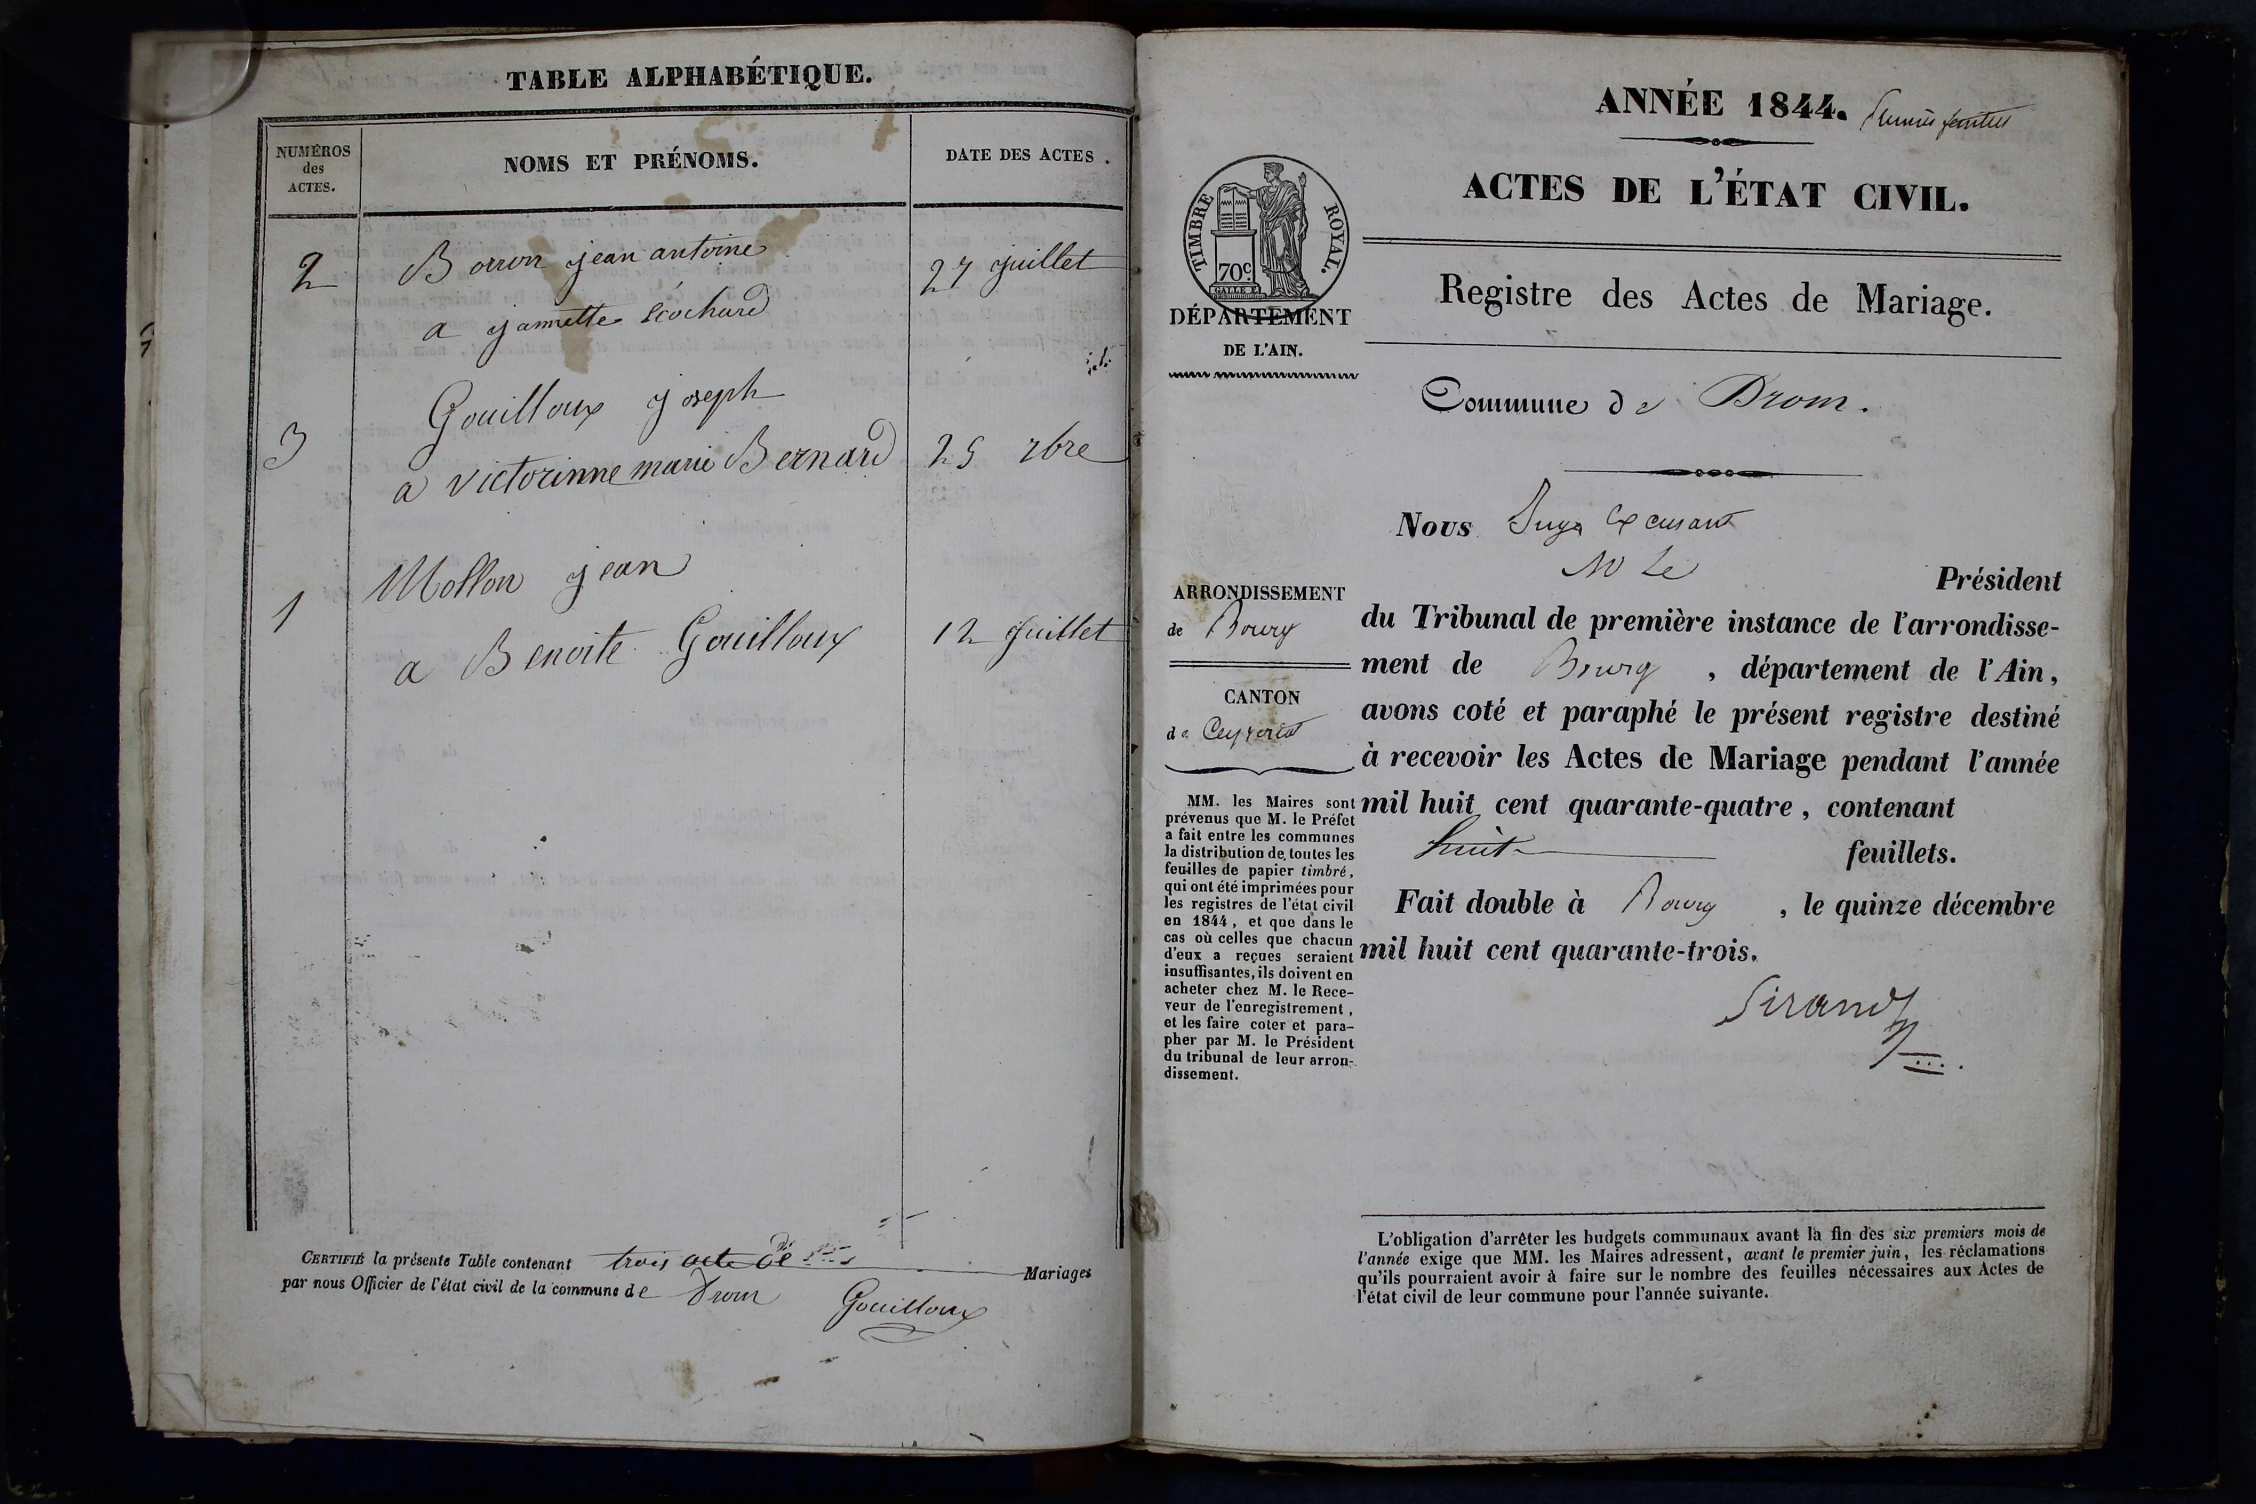 TABLE ALPHABÉTIQUE.
NUMÉROS
des
ACTES.
NOMS ET PRÉNOMS.
DATE DES ACTES.
2 Borron jean antoine 27 juillet
a jannette
Gouilloux joseph
3 a victorinne marie Bernard 25 7bre
Mollon jean
1 a Benoite Gouilloux 12 juillet
CERTIFIÉ la présente Table contenant trois acte de Mariages
par nous Officier de l'état civil de la commune de Drom
Gouilloux
ANNÉE 1844.
ACTES DE L'ÉTAT CIVIL.
TIMBRE ROYAL.
70c.
DÉPARTEMENT
DE L'AIN.
Registre des Actes de Mariage.
Commune de Drom.
ARRONDISSEMENT
de Bourg
CANTON
de Ceyzeriat
MM. les Maires sont
prévenus que M. le Préfet
a fait entre les communes
la distribution de toutes les
feuilles de papier timbré,
qui ont été imprimées pour
les registres de l'état civil
en 1844, et que dans le
cas où celles que chacun
d'eux a reçues seraient
insuffisantes, ils doivent en
acheter chez M. le Rece-
veur de l'enregistrement,
et les faire coter et para-
pher par M. le Président
du tribunal de leur arron-
dissement.
Nous Juge
M Le Président
du Tribunal de première instance de l'arrondisse-
ment de Bourg, département de l'Ain,
avons coté et paraphé le présent registre destiné
à recevoir les Actes de Mariage pendant l'année
mil huit cent quarante-quatre, contenant
huit feuillets.
Fait double à Bourg, le quinze décembre
mil huit cent quarante-trois.
Sirand
L'obligation d'arrêter les budgets communaux avant la fin des six premiers mois de
l'année exige que MM. les Maires adressent, avant le premier juin, les réclamations
qu'ils pourraient avoir à faire sur le nombre des feuilles nécessaires aux Actes de
l'état civil de leur commune pour l'année suivante.